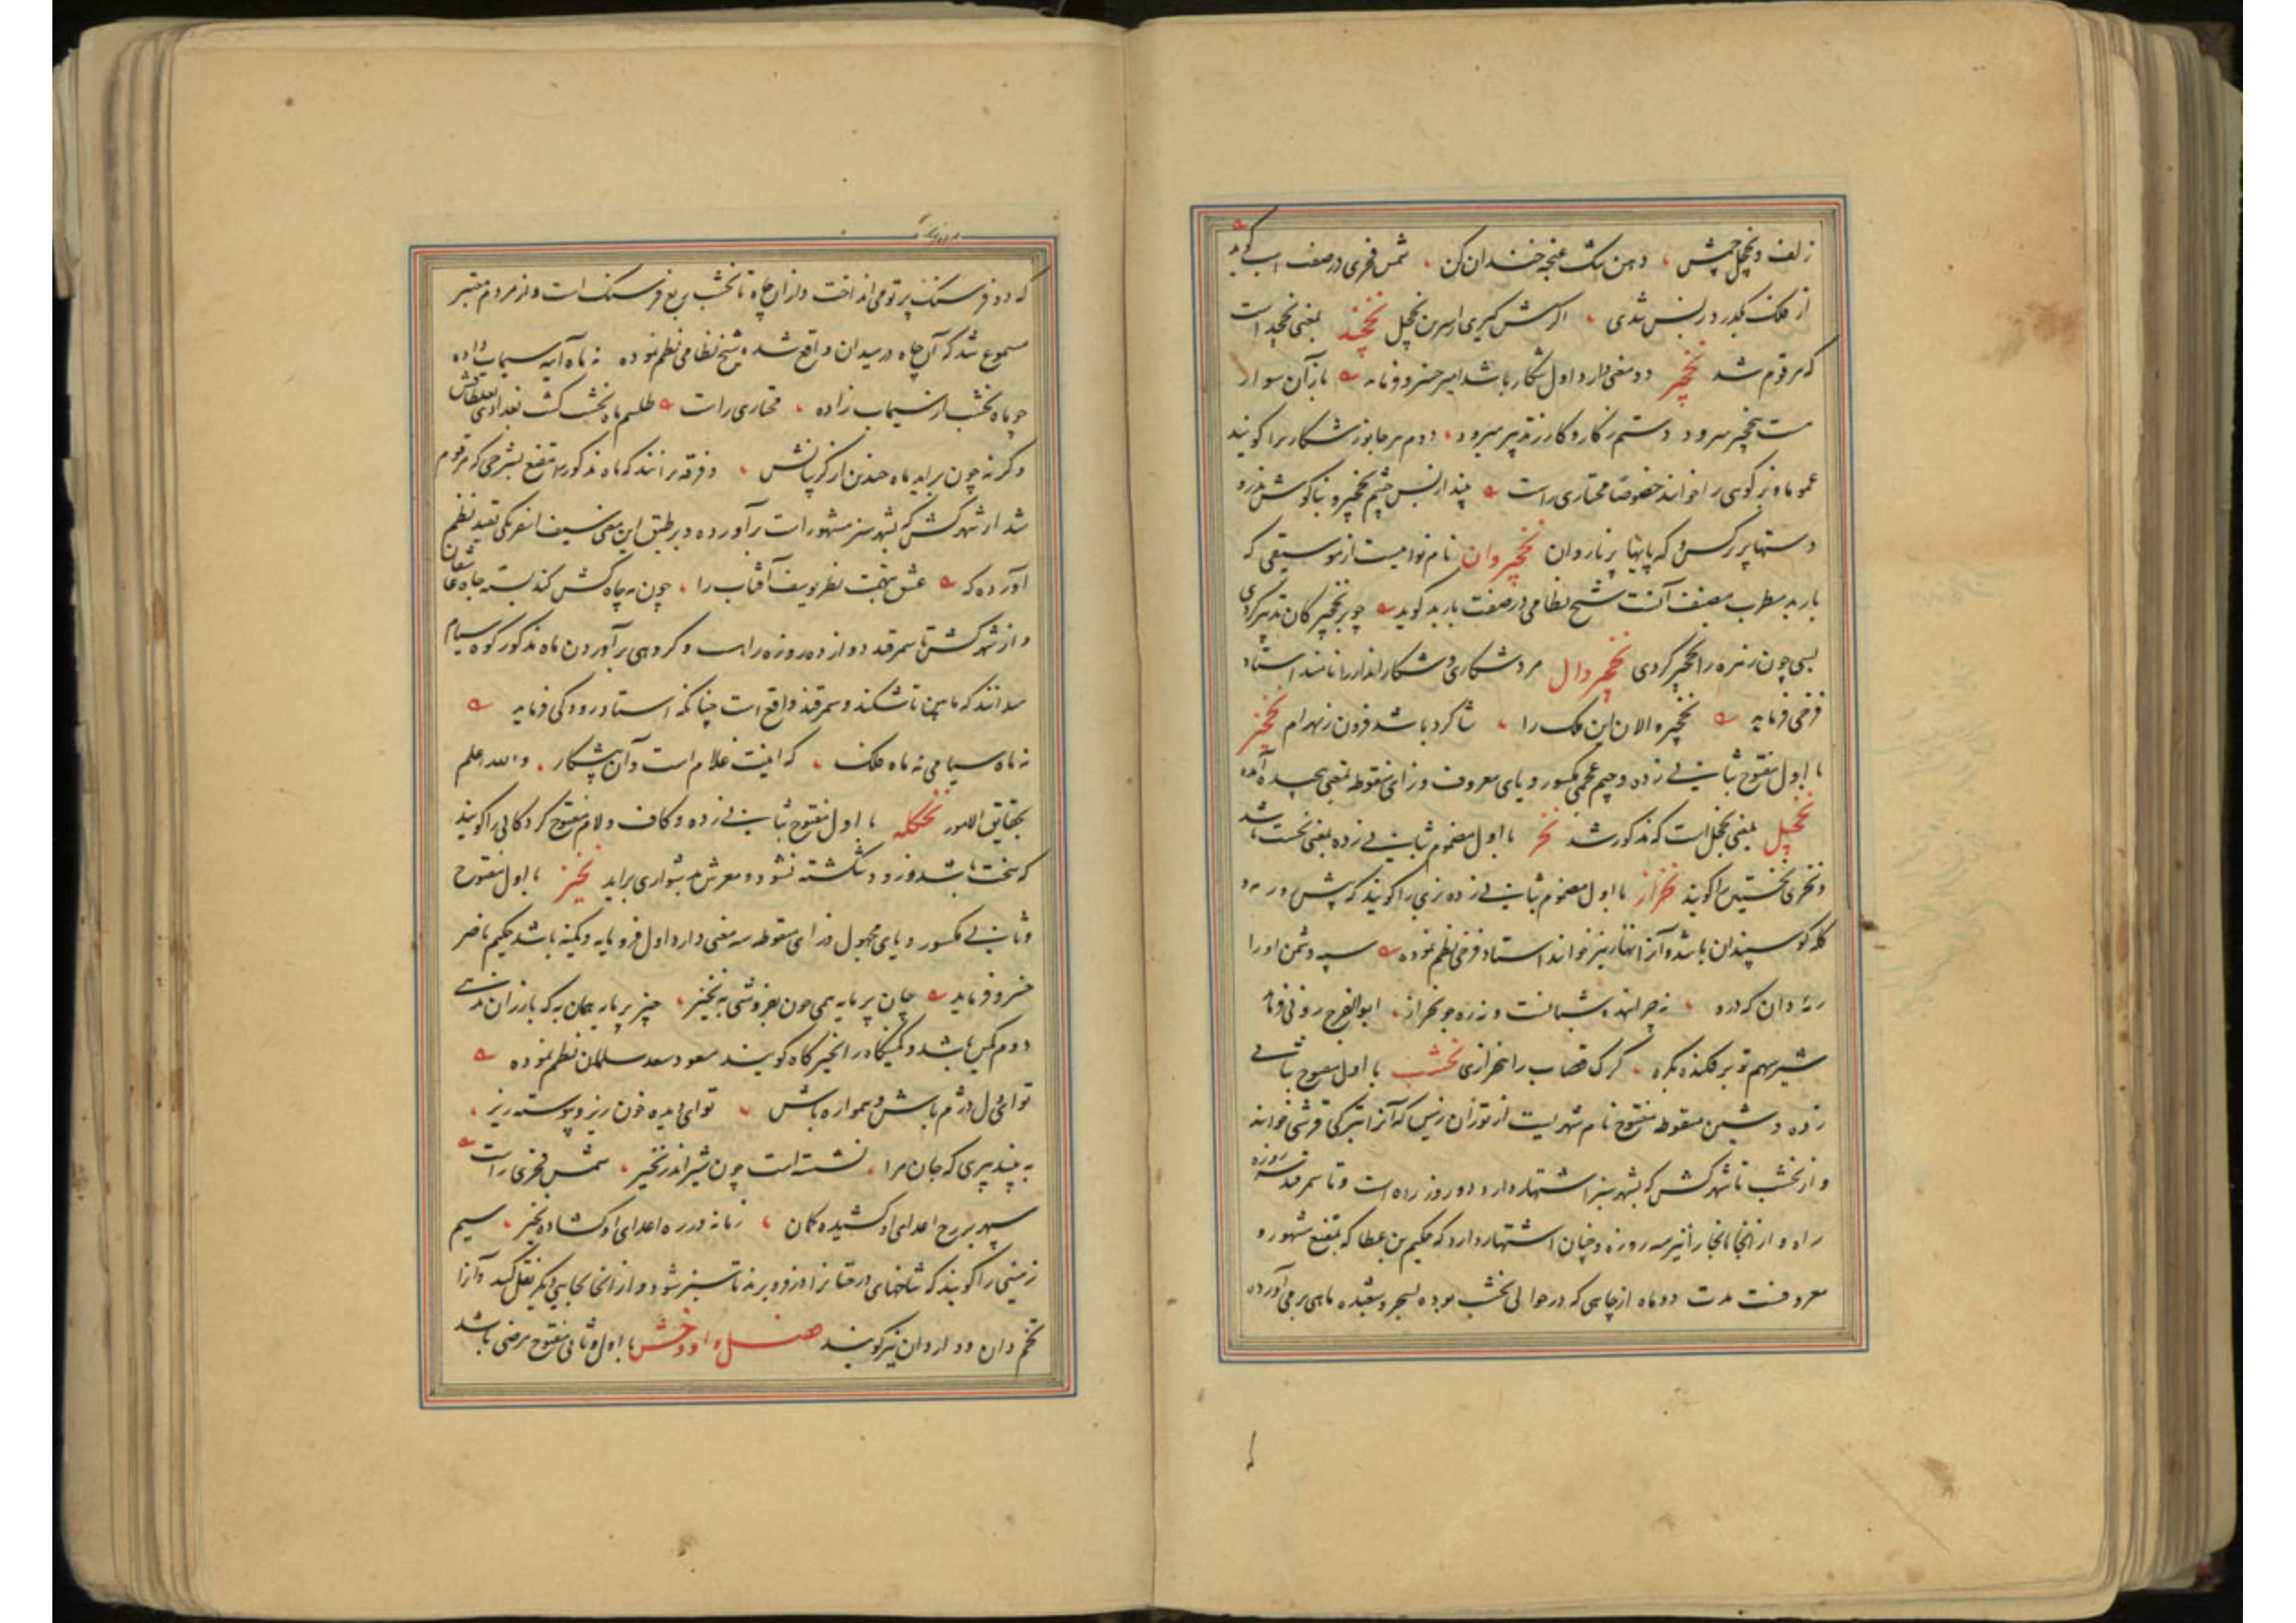 زلف و نخچل چشمش ، دهن تنک غنچه خندان کن ، شمس فخری در صفت اسب گوید
از فلک بگذرد ز بس شدی ، اگرش گیری از سرین نخچل نخچند بمعنی نخچد است
که مرقوم شد نخچیر دو معنی دارد اول شکار باشد امیر خسرو فرماید باز آن سوار
مست بنخچیر میرود دستم ز کار و کار ز تدبیر میرود ، دوم هر جانور شکاری را گویند
عموما و بز کوهی را خوانند خصوصا مختاری راست بیند از بس چشم نخچیر و بناگوش تذرو
دستها پر نرگس و که پایها پر ناروان نخچیروان نام نوائیست از موسیقی که
باربد مطرب مصنف آنست شیخ نظامی در صفت باربد گوید چو بر نخچیرکان تدبیر کردی
بسی چون زهره را نخچیر کردی نخچیروال مرد شکاری و شکار انداز را نامند استاد
فرخی فرماید نخچیر والان این ملک را ، شاگرد باشد فزون ز بهرام نخچیز
با اول مفتوح بثانی زده و جیم عجمی مکسور و یای معروف و زای منقوطه بمعنی پیچیده آمده
نخچیل بمعنی نخچل است که مذکور شد نخر با اول مضموم بثانی زده بمعنی نخست باشد
و نخری نخستین را گویند نخراز با اول مضموم بثانی زده بزی را گویند که پیش رو رمه و
گله گوسپندان باشد و آنرا نهاز نیز خوانند استاد فرخی نظم نموده سپه دشمن او را
رمه دان که درو ، نه چرانده شبانست و نه ره جو نخراز ، ابوالفرج رونی فرماید
شیر سهم تو بر فکنده بکره ، گرگ قصاب را بنخرازی نخشب با اول مفتوح بثانی
زده و شین منقوطه مفتوح نام شهریست از توران زمین که آنرا بترکی قرشی خوانند
و از نخشب تا شهر کش که بشهر سبز اشتهار دارد دو روز راه است و تا سمرقند سه روزه
راه و از آنجا تا بخارا نیز سه روزه و چنان اشتهار دارد که حکیم بن عطا که بمقنع مشهور و
معروفست مدت دو ماه از چاهی که در حوالی نخشب بوده بسحر و شعبده ماهی بر می آورده
که دو فرسنک پرتو می انداخت و از آن چاه تا نخشب ربع فرسنک است و از مردم معتبر
مسموع شد که آن چاه در میدان واقع شده شیخ نظامی نظم نموده نه ماه آینه سیماب داده
چو ماه نخشب از سیماب زاده ، مختاری راست طلسم ماه نخشب گشت بغدادی بغلطاقش
وگر نه چون برآید ماه چندین از گریبانش ، و فرقه برانند که ماه مذکور را مقنع بشرحی که مرقوم
شد از شهر کش که بشهر سبز مشهور است برآورده و بر طبق این معنی سیف اسفرنگی بقید نظم
آورده که عشق نتیجت نظر یوسف آفتاب را ، چون مه چاه کش کند بسته چاه بی شعاع
و از شهر کش تا سمرقند دوازده روزه راهست و گروهی برآوردن ماه مذکور کوه سیام
میدانند که مابین تاشکند و سمرقند واقع است چنانکه استاد رودکی فرماید
نه ماه سیامی نه ماه فلک ، که اینت غلام است و آن پیشکار . والله اعلم
بحقایق الامور نخکله با اول مفتوح بثانی زده و کاف و لام مفتوح گردکانی را گویند
که سخت باشد و زود شکسته نشود و مغزش بدشواری برآید نخیز با اول مفتوح
و ثانی مکسور و یای مجهول و زای منقوطه سه معنی دارد اول فرومایه و کمینه باشد حکیم ناصر
خسرو فرماید جان پر مایه همی چون بفروشی به نخیز ، چیز پر مایه همان به که بارزان ندهی
دوم کمین باشد و کمینگاه را نخیزگاه گویند مسعود سعد سلمان نظم نموده
تو ای دل دژم باش و همواره باش ، تو ای دیده خون ریز و پیوسته ریز ،
به بیند پیری که جان مرا ، نشسته است چون شیر اندر نخیز ، شمس فخری راست
سپهر بر رح اعدای او کشیده کمان ، زمانه در ره اعدای او گشاده نخیز ، سیم
زمینی را گویند که شاخهای درختان را در او فرو برند تا سبز شود و از آنجا بجایی دیگر نقل کنند و آنرا
تخم دان و داردان نیز گویند فصل واو وخش با اول و ثانی مفتوح مرضی باشد